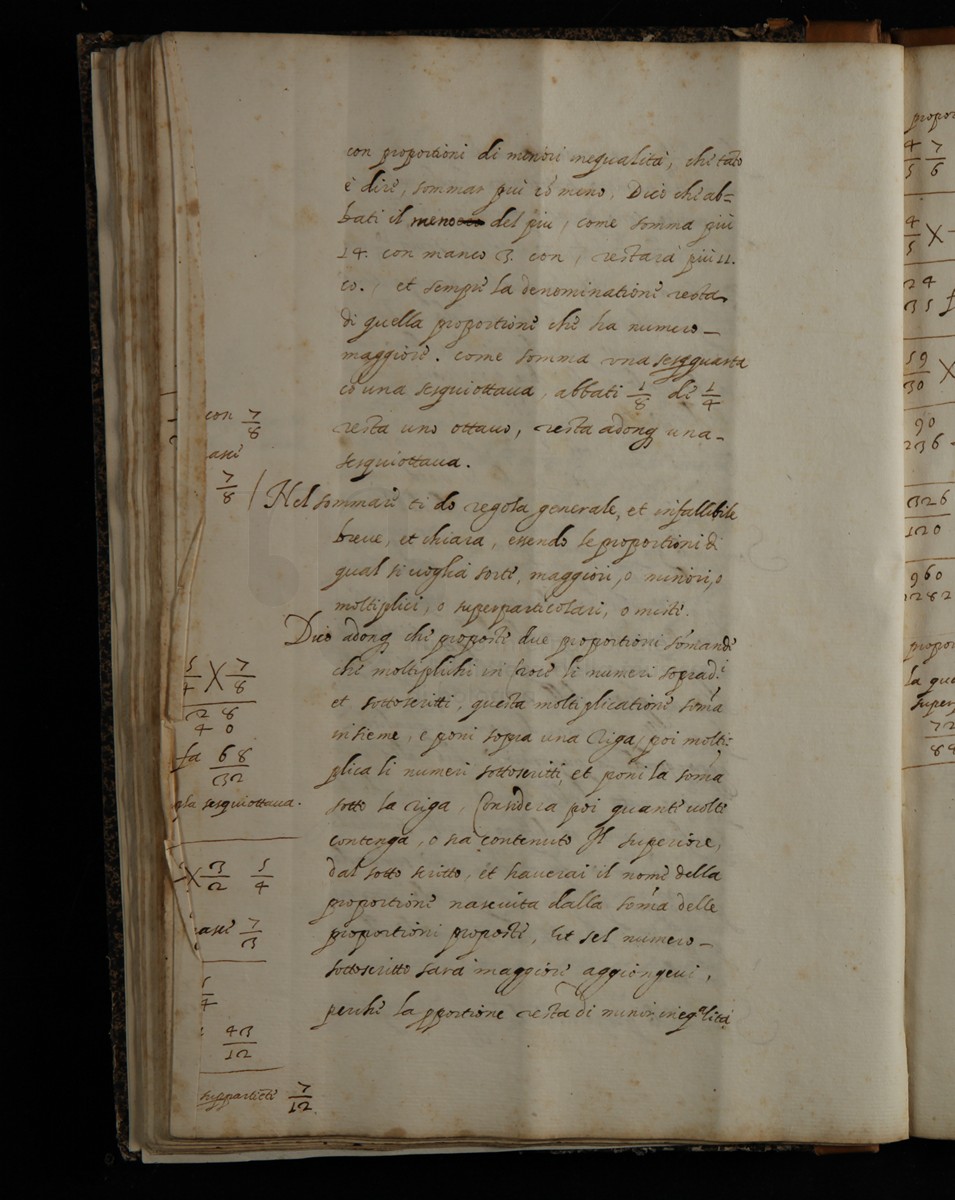 con proportioni di minori inequalità, che tãto
è dire, sommar più cõ meno, Dico che ab=
bati il meno del piu, come somma più
14. con manco 3. con, restarà più 11.
co., et sempre la denominatione resta
di quella proportione che ha numero
maggiore. come somma una sesqquarta
cõ una sesquiottava, abbati 1/8 di 1/4
resta uno ottavo, resta adonq una
sesquiottava.
Nel sommare ti do regola generale, et infallibile
breve, et chiara, essendo le proportioni di
qual si voglia sorte, maggiori, o minori, o
moltiplici, o superparticolari, o miste.
Dico adonq che proposte due proportioni sõmande
che moltiplichi in croce li numeri soprad.i
et sottoscritti, questa moltiplicatione sõma
insieme, e poni sopra una riga, poi molti=
plica li numeri sottoscritti, et poni la sõma
sotto la riga, Considera poi quante volte
contenga, o sia contenuto Il superiore,
dal sotto scritto, et haverai il nome della
proportione nascivta dalla sõma delle
proportioni proposte, Et sel numero
sottoscritto sarà maggiore aggiongevi,
perche la pportione resta di minor ineqlità
con 7/8
asce
7/8
5/4 X 7/8
28
40
fa 68/32
sesquiottava.
X 3/2 5/4
asce 7/3
43/12
suppartiete 7/12
propor
4/5 7/6
4/5 X
24
35 f
59/30 X
90
236
326
120
960
2282
propor
la que
super
72
88